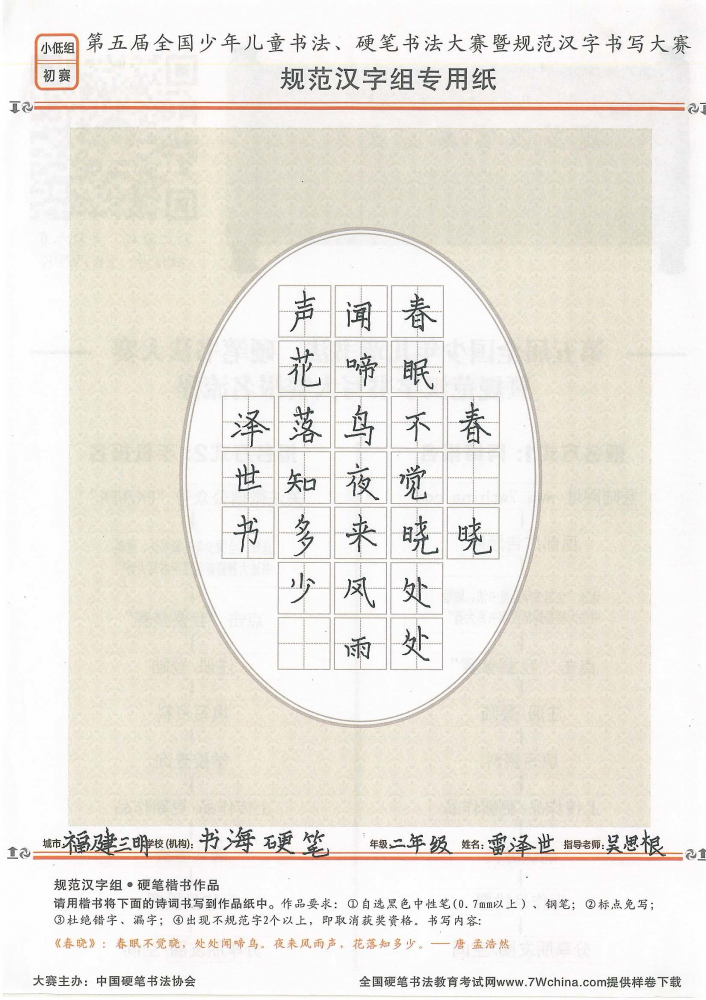 小低组
初赛
第五届全国少年儿童书法、硬笔书法大赛暨规范汉字书写大赛
规范汉字组专用纸
春晓
春眠不觉晓处处
闻啼鸟夜来风雨
声花落知多少
泽世书
城市:福建三明 学校(机构):书海硬笔 年级:二年级 姓名:雷泽世 指导老师:吴思根
规范汉字组●硬笔楷书作品
请用楷书将下面的诗词书写到作品纸中。作品要求:①自选黑色中性笔(0.7mm以上)、钢笔;②标点免写;
③杜绝错字、漏字;④出现不规范字2个以上,即取消获奖资格。书写内容:
《春晓》:春眠不觉晓,处处闻啼鸟。夜来风雨声,花落知多少。——唐·孟浩然
大赛主办:中国硬笔书法协会
全国硬笔书法教育考试网www.7Wchina.com提供样卷下载